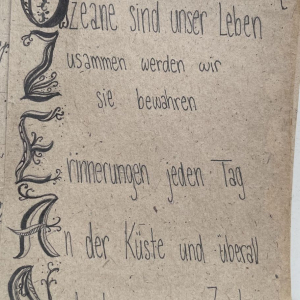 Ozeane sind unser Leben
Zusammen werden wir
sie bewahren
Erinnerungen jeden Tag
An der Küste und überall